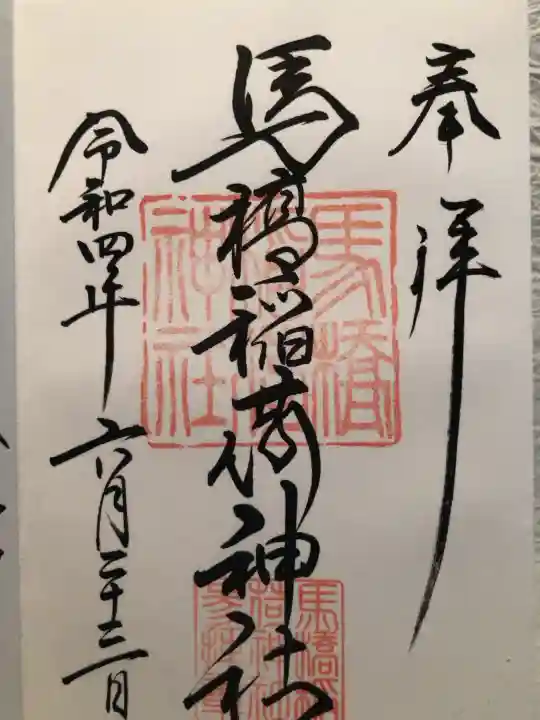 奉拝
馬橋稲荷神社
令和四年六月二十三日
馬橋稲荷神社